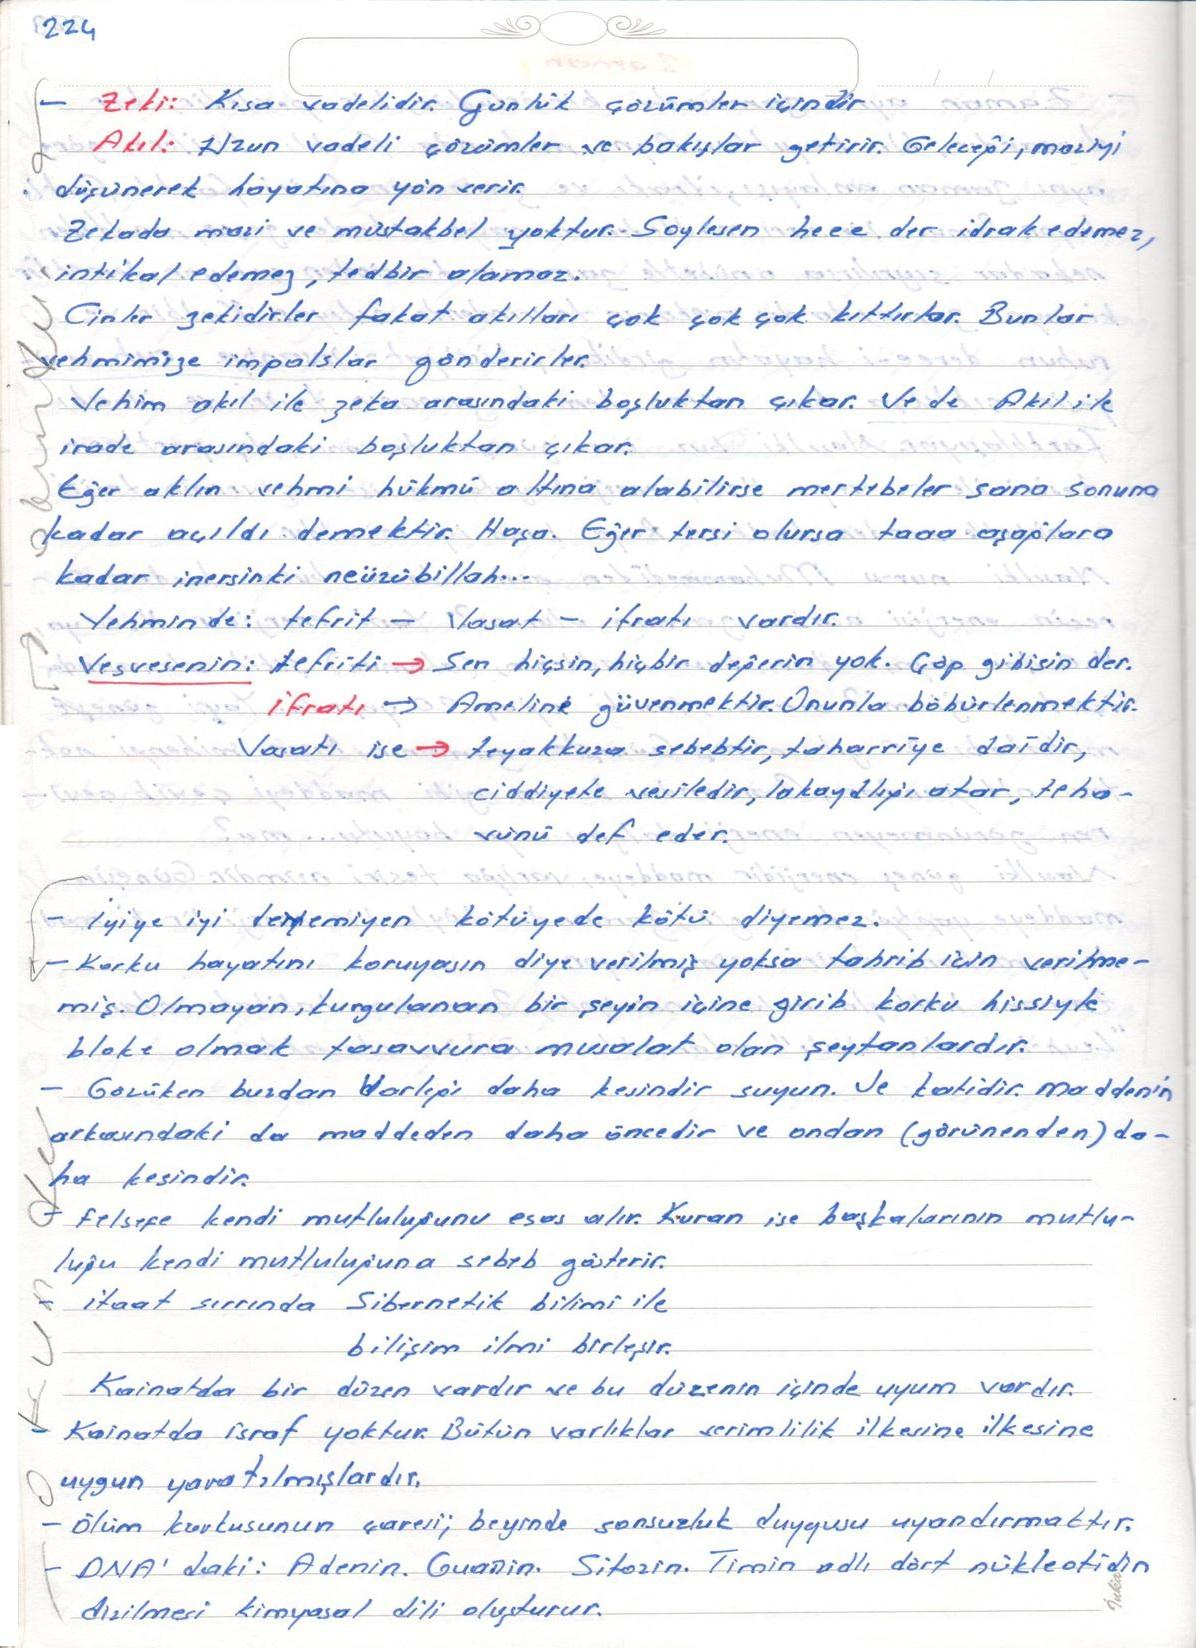 224
- Zeki: Kısa vadelidir. Günlük çözümler içindir
Akıl: Uzun vadeli çözümler ve bakışlar getirir. Geleceği, maziyi
düşünerek hayatına yön verir.
Zekada mazi ve müstakbel yoktur. Soylesen heee der idrak edemez,
intikal edemez, tedbir alamaz.
Cinler zekidirler fakat akılları çok çok çok kıttırlar. Bunlar
vehmimize impalslar gönderirler.
Vehim akıl ile zeka arasındaki boşluktan çıkar. Ve de Akıl ile
irade arasındaki boşluktan çıkar.
Eğer aklın vehmi hükmü altına alabilirse mertebeler sana sonuna
kadar açıldı demektir. Haşa. Eğer tersi olursa taaa aşağılara
kadar inersinki neüzübillah...
Vehminde: tefrit - Vasat - ifratı vardır.
Vesvesenin: tefriti → Sen hiçsin, hiçbir değerin yok. Çöp gibisin der.
ifratı → Ameline güvenmektir. Onunla böbürlenmektir.
Vasatı ise → teyakkuza sebebtir, taharrîye daîdir,
ciddiyete vesiledir, lakaydlığı atar, teha-
vünü def eder.
- İyiye iyi deyemiyen kötüyede kötü diyemez.
- Korku hayatını koruyasın diye verilmiş yoksa tahrib için verilme-
miş. Olmayan, kurgulanan bir şeyin içine girib korku hissiyle
bloke olmak tasavvura musalat olan şeytanlardır.
- Gozüken buzdan Varlığı daha kesindir suyun. Ve katidir. Maddenin
arkasındaki da maddeden daha öncedir ve ondan (görünenden) da-
ha kesindir.
- Felsefe kendi mutluluğunu esas alır. Kuran ise başkalarının mutlu-
luğu kendi mutluluğuna sebeb gösterir.
- itaat sırrında Sibernetik bilimi ile
bilişim ilmi birleşir.
Kainatda bir düzen vardır ve bu düzenin içinde uyum vardır.
- Kainatda israf yoktur. Bütün varlıklar verimlilik ilkesine ilkesine
uygun yaratılmışlardır.
- Ölüm korkusunun çaresi; beyinde sonsuzluk duygusu uyandırmaktır.
- DNA' daki: Adenin. Guanin. Sitozin. Timin adlı dört nükleotidin
dizilmesi kimyasal dili oluşturur.